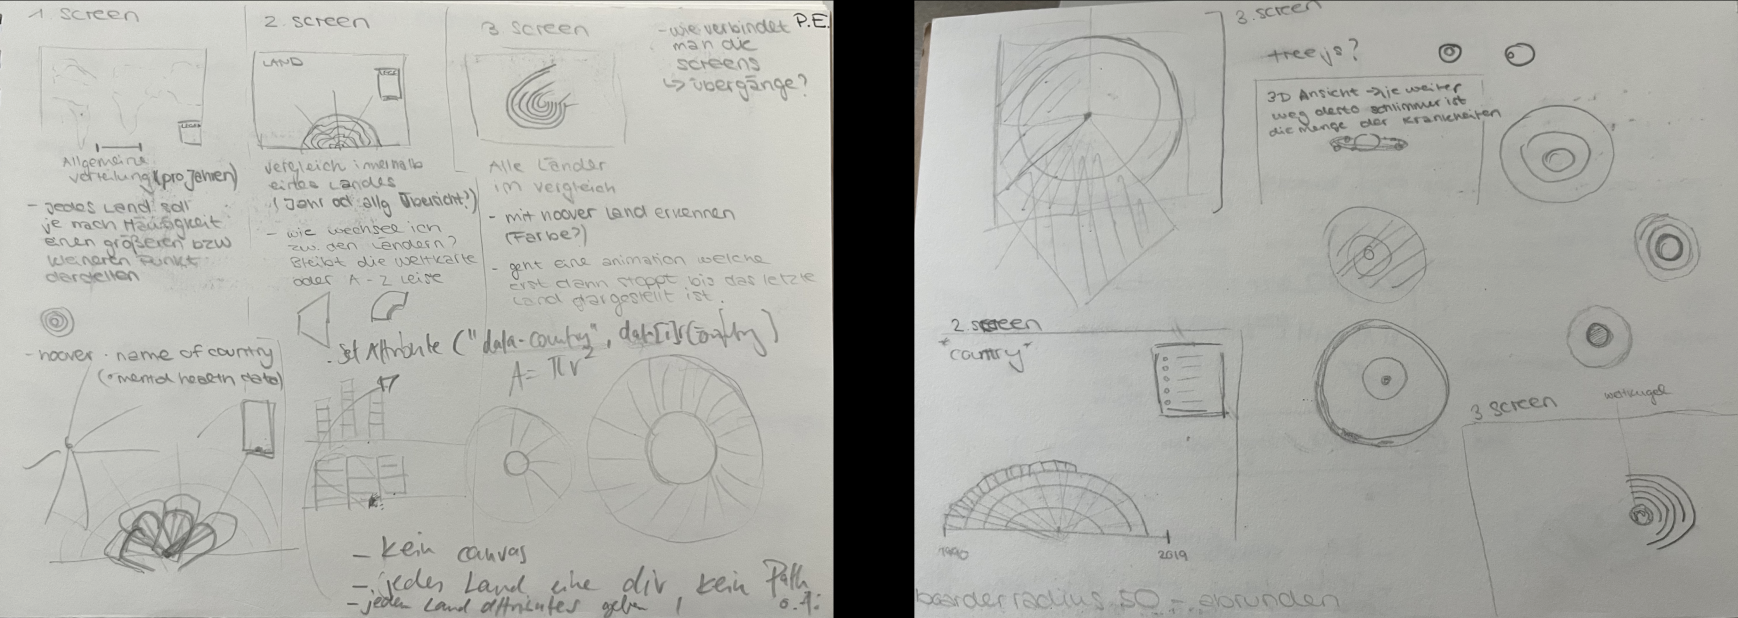 1 screen
Allgemeine
verteilung (pro Jahren)
- jedes Land soll
je nach Häufigkeit
einen größeren bzw
kleineren Punkt
darstellen
- hoover · name of country
(· mental health data)
2. screen
LAND
vergleich innerhalb
eines Landes
(Jahr od. allg Übersicht?)
- wie wechsel ich
zw. den Ländern?
Bleibt die Weltkarte
oder A - Z Leiste
3. screen
Alle Länder
im vergleich
- mit hoover Land erkennen
(Farbe?)
- geht eine animation welche
erst dann stoppt bis das letzte
Land dargestellt ist.
P.E.
- wie verbindet
man die
screens
↳ übergänge?
. set Attribute ("data-country", data[i].country)
A = πr²
- kein canvas
- jedes Land eine div, kein Path
- jedem Land attributes geben
o.Ä.
3. screen
three js?
3D Ansicht → je weiter
weg desto schlimmer ist
die menge der Krankheiten
2. screen
"country"
1990
2019
3 screen
weltkugel
boarder radius 50 - abrunden